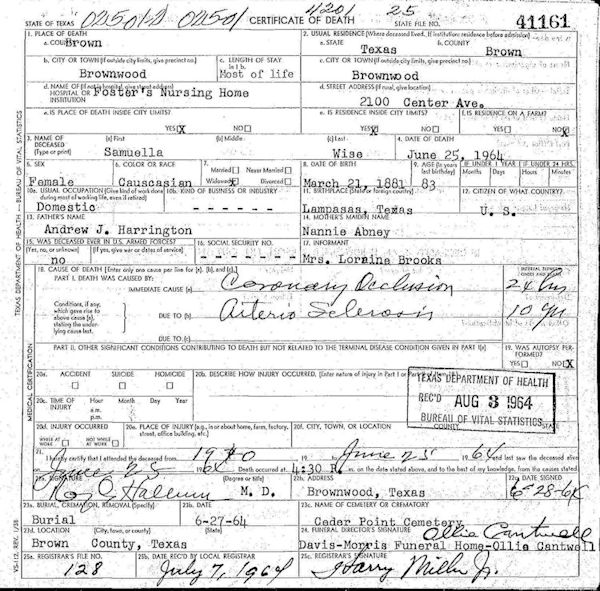 4201 25
STATE OF TEXAS 02501-2 02501 CERTIFICATE OF DEATH STATE FILE NO. 41161
1. PLACE OF DEATH
a. COUNTY Brown
2. USUAL RESIDENCE (Where deceased lived. If institution: residence before admission)
a. STATE Texas b. COUNTY Brown
b. CITY OR TOWN (If outside city limits, give precinct no.) Brownwood
c. LENGTH OF STAY in 1 b. Most of life
c. CITY OR TOWN (If outside city limits, give precinct no.) Brownwood
d. NAME OF (If not in hospital, give street address) HOSPITAL OR INSTITUTION Foster's Nursing Home
d. STREET ADDRESS (If rural, give location) 2100 Center Ave.
e. IS PLACE OF DEATH INSIDE CITY LIMITS? YES X NO
e. IS RESIDENCE INSIDE CITY LIMITS? YES X NO
f. IS RESIDENCE ON A FARM? YES NO X
3. NAME OF DECEASED (Type or print) (a) First Samuella (b) Middle (c) Last Wise
4. DATE OF DEATH June 25, 1964
5. SEX Female
6. COLOR OR RACE Causcasian
7. Married Never Married Widowed X Divorced
8. DATE OF BIRTH March 21, 1881
9. AGE (In years last birthday) 83
IF UNDER 1 YEAR Months Days
IF UNDER 24 HRS. Hours Minutes
10a. USUAL OCCUPATION (Give kind of work done during most of working life, even if retired) Domestic
10b. KIND OF BUSINESS OR INDUSTRY
11. BIRTHPLACE (State or foreign country) Lampasas, Texas
12. CITIZEN OF WHAT COUNTRY? U. S.
13. FATHER'S NAME Andrew J. Harrington
14. MOTHER'S MAIDEN NAME Nannie Abney
15. WAS DECEASED EVER IN U.S. ARMED FORCES? (Yes, no, or unknown) no (If yes, give war or dates of service)
16. SOCIAL SECURITY NO.
17. INFORMANT Mrs. Loraine Brooks
18. CAUSE OF DEATH [Enter only one cause per line for (a), (b), and (c).]
PART I. DEATH WAS CAUSED BY:
INTERVAL BETWEEN ONSET AND DEATH
IMMEDIATE CAUSE (a) Coronary Occlusion 24 hrs
Conditions, if any, which gave rise to above cause (a), stating the underlying cause last.
DUE TO (b) Arterio Sclerosis 10 yrs
DUE TO (c)
PART II. OTHER SIGNIFICANT CONDITIONS CONTRIBUTING TO DEATH BUT NOT RELATED TO THE TERMINAL DISEASE CONDITION GIVEN IN PART I(a)
19. WAS AUTOPSY PERFORMED? YES NO X
20a. ACCIDENT SUICIDE HOMICIDE
20b. DESCRIBE HOW INJURY OCCURRED. (Enter nature of injury in Part I or Part II of item 18.)
20c. TIME OF INJURY Hour a.m. p.m. Month Day Year
TEXAS DEPARTMENT OF HEALTH
REC'D AUG 3 1964
BUREAU OF VITAL STATISTICS
20d. INJURY OCCURRED WHILE AT WORK NOT WHILE AT WORK
20e. PLACE OF INJURY (e.g., in or about home, farm, factory, street, office building, etc.)
20f. CITY, TOWN, OR LOCATION COUNTY STATE
21. I hereby certify that I attended the deceased from 1940 to June 25 1964 and last saw the deceased alive
on June 25 1964 Death occurred at 4:30 P. m. on the date stated above, and to the best of my knowledge, from the causes stated
22a. SIGNATURE (Degree or title) M. D.
22b. ADDRESS Brownwood, Texas
22c. DATE SIGNED 6-28-64
23a. BURIAL, CREMATION, REMOVAL (Specify) Burial
23b. DATE 6-27-64
23c. NAME OF CEMETERY OR CREMATORY Cedar Point Cemetery
23d. LOCATION (City, town, or county) (State) Brown County, Texas
24. FUNERAL DIRECTOR'S SIGNATURE Ollie Cantwell
Davis-Morris Funeral Home-Ollie Cantwell
25a. REGISTRAR'S FILE NO. 128
25b. DATE REC'D BY LOCAL REGISTRAR July 7, 1964
25c. REGISTRAR'S SIGNATURE Harry Miller Jr.
TEXAS DEPARTMENT OF HEALTH — BUREAU OF VITAL STATISTICS
MEDICAL CERTIFICATION